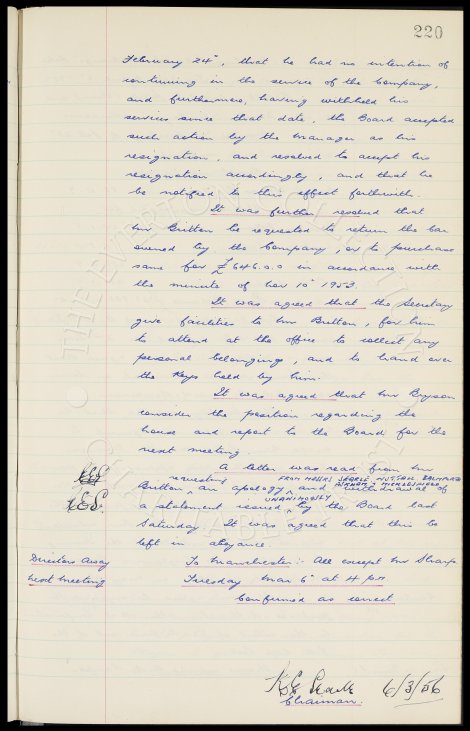 220
February 24th, that he had no intention of
continuing in the service of the Company,
and furthermore, having withheld his
services since that date, the Board accepted
such action by the Manager as his
resignation, and resolved to accept his
resignation accordingly, and that he
be notified to this effect forthwith.
It was further resolved that
Mr Britton be requested to return the car
owned by the Company, or to purchase
same for £646.0.0 in accordance with
the minute of Nov 10th 1953.
It was agreed that the Secretary
give facilities to Mr Britton, for him
to attend at the office to collect any
personal belongings, and to hand over
the keys held by him.
It was agreed that Mr Bryson
consider the position regarding the
house and report to the Board for the
next meeting.
A letter was read from Mr
requesting FROM MESSRS SEARLE NUTTALL
KES Britton, an apology and withdrawal of
UNANIMOUSLY
KES. a statement issued by the Board last
Saturday. It was agreed that this be
left in abeyance.
Directors Away To Manchester:- All except Mr Sharp.
next meeting Tuesday Mar 6th at 4 pm
Confirmed as correct
6/3/56
Chairman.
THE EVERTON COLLECTION